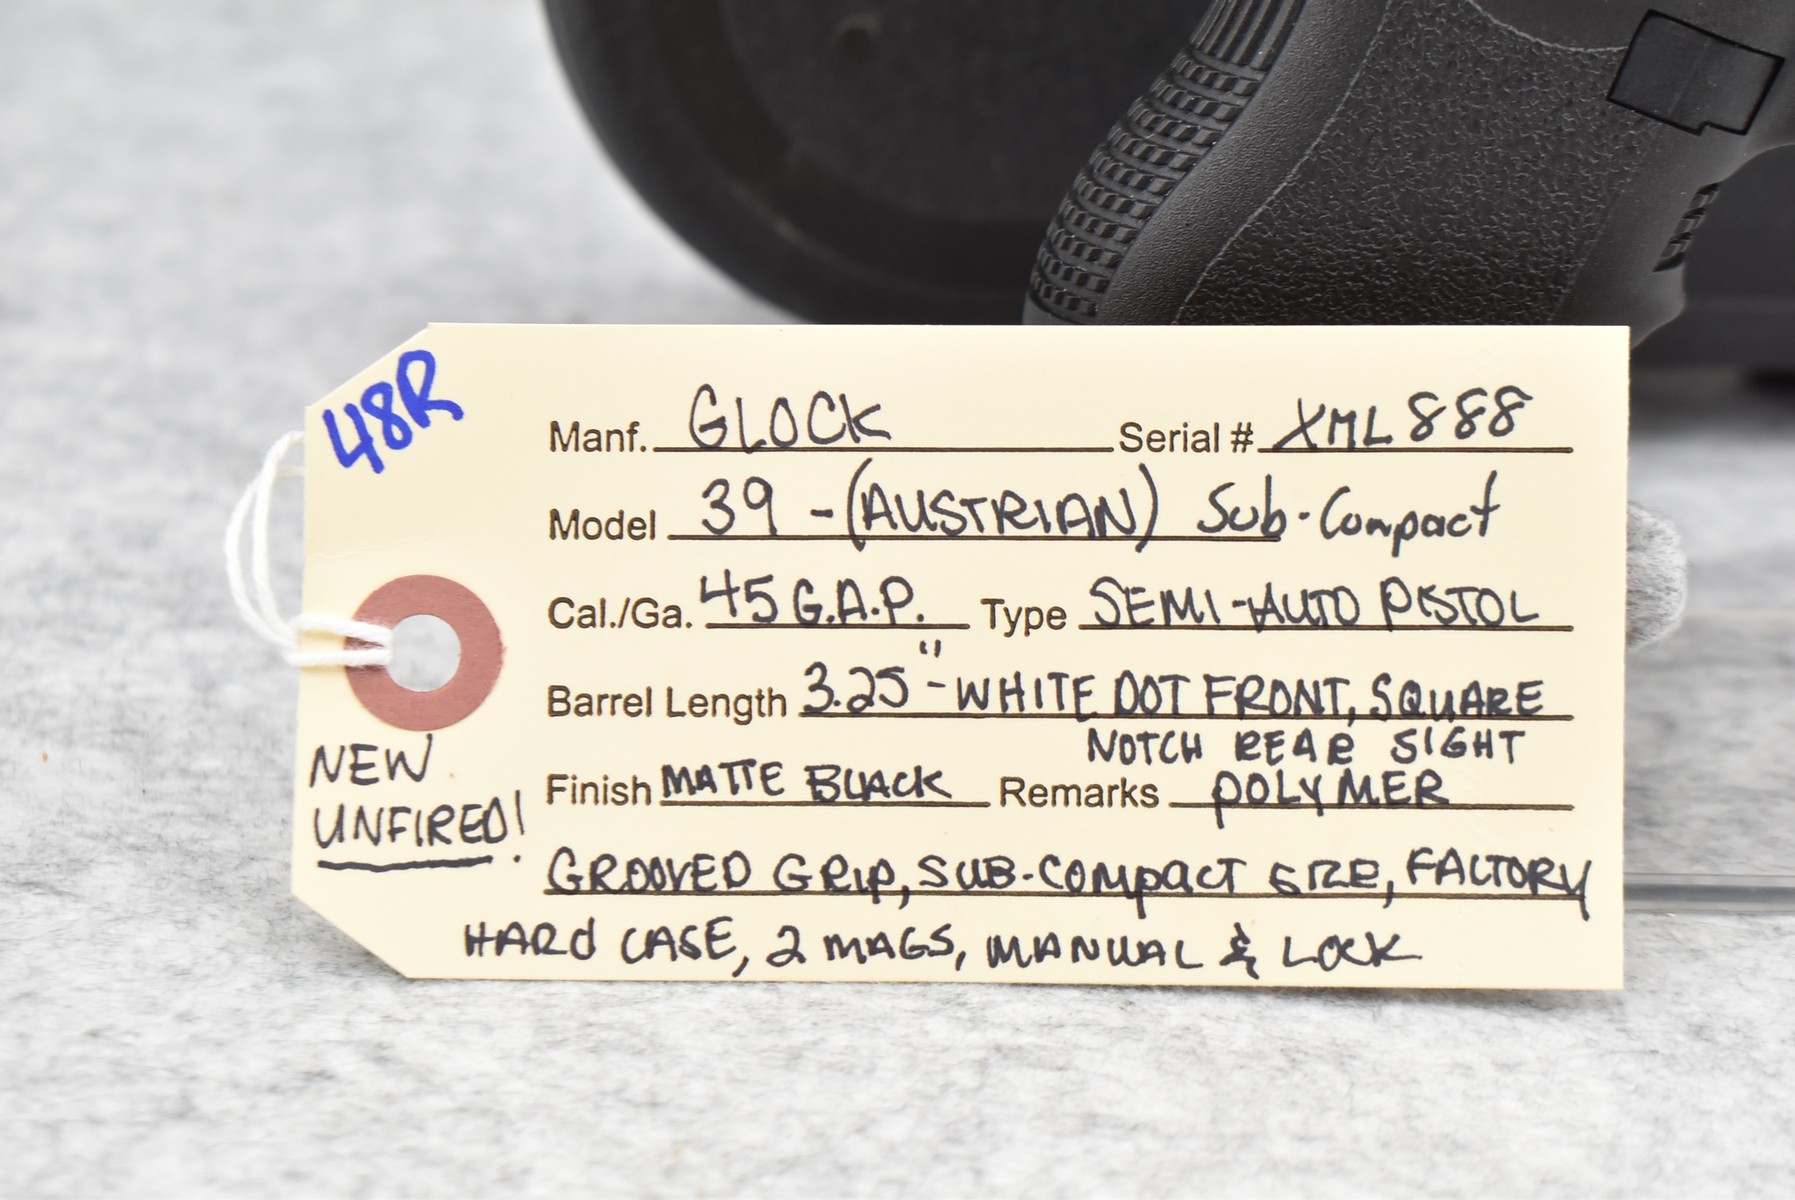 48R
Manf. GLOCK Serial # XML888
Model 39 - (AUSTRIAN) Sub-Compact
Cal./Ga. 45 G.A.P. Type SEMI-AUTO PISTOL
Barrel Length 3.25" - WHITE DOT FRONT, SQUARE
NOTCH REAR SIGHT
Finish MATTE BLACK Remarks POLYMER
GROOVED GRIP, SUB-COMPACT SIZE, FACTORY
HARD CASE, 2 MAGS, MANUAL & LOCK
NEW
UNFIRED!